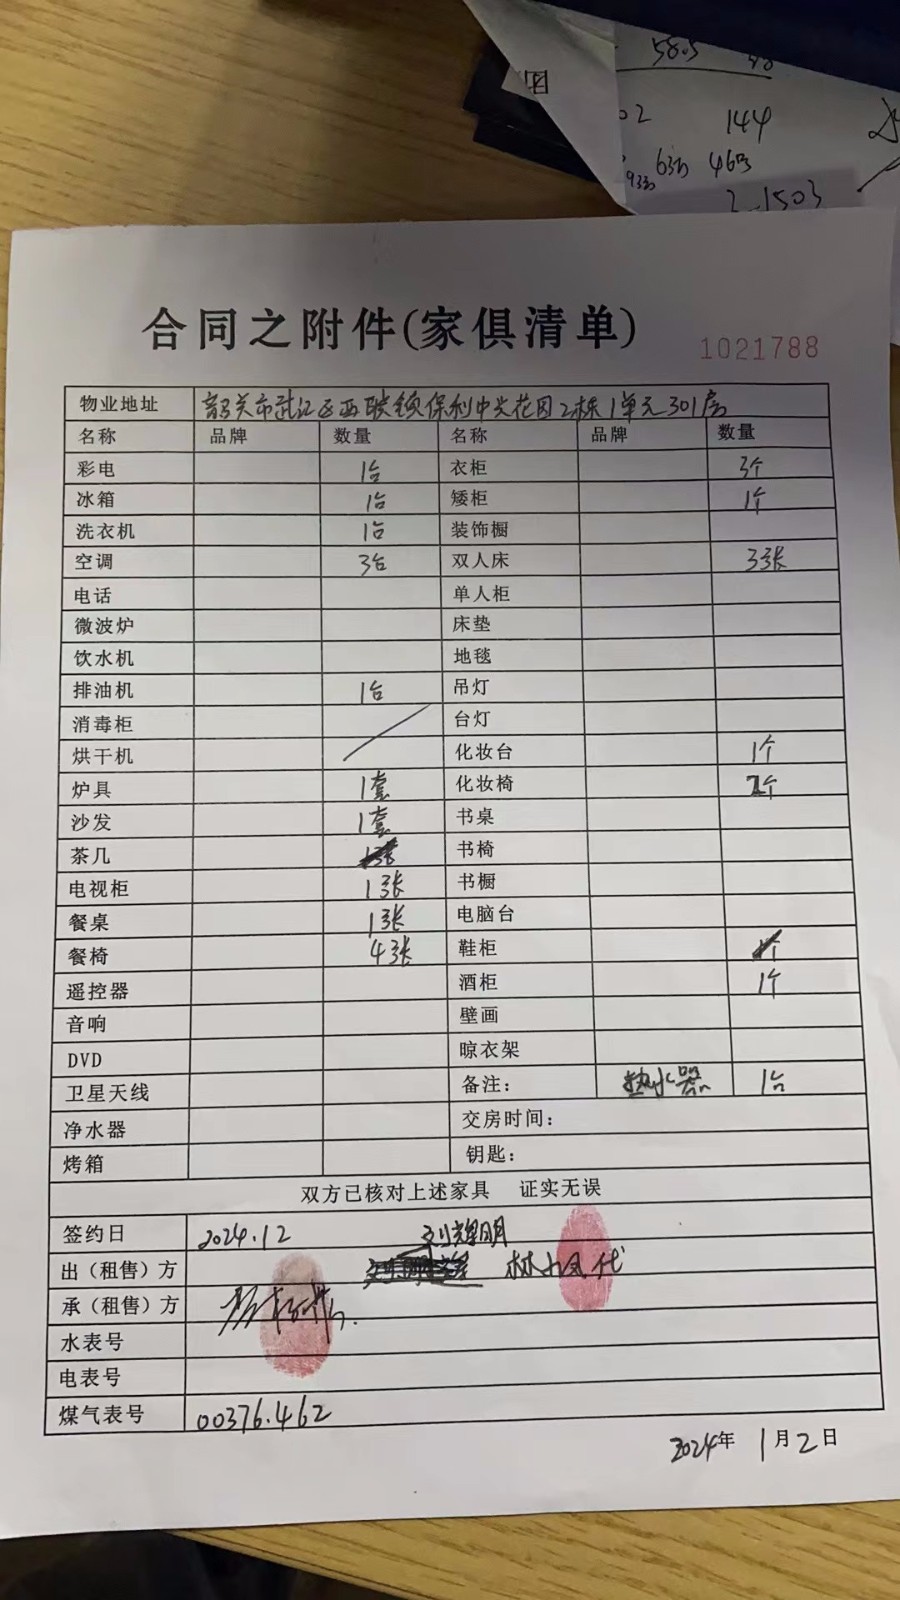 58.5
团
02 144
63the 46
2-1503
合同之附件(家俱清单)
1021788
物业地址 韶关市武江区西联镇保利中央花园2栋1单元301房
名称 品牌 数量 名称 品牌 数量
彩电 1台 衣柜 3个
冰箱 1台 矮柜 1个
洗衣机 1台 装饰橱
空调 3台 双人床 3张
电话 单人柜
微波炉 床垫
饮水机 地毯
排油机 1台 吊灯
消毒柜 台灯
烘干机 化妆台 1个
炉具 1套 化妆椅 1个
沙发 1套 书桌
茶几 书椅
电视柜 1张 书橱
餐桌 1张 电脑台
餐椅 4张 鞋柜
遥控器 酒柜 1个
音响 壁画
DVD 晾衣架
卫星天线 备注: 热水器 1台
净水器 交房时间:
烤箱 钥匙:
双方已核对上述家具 证实无误
签约日 2024.1.2 刘辉明
出（租售）方 林凤代
承（租售）方
水表号
电表号
煤气表号 00376.462
2024年 1月2日